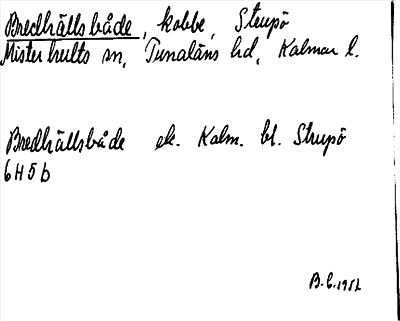 Bredhällsbåde, kobbe, Strupö
Misterhults sn, Tunaläns hd, Kalmar l.
Bredhällsbåde ek. Kalm. bl. Strupö
6H5b
B.C. 1952